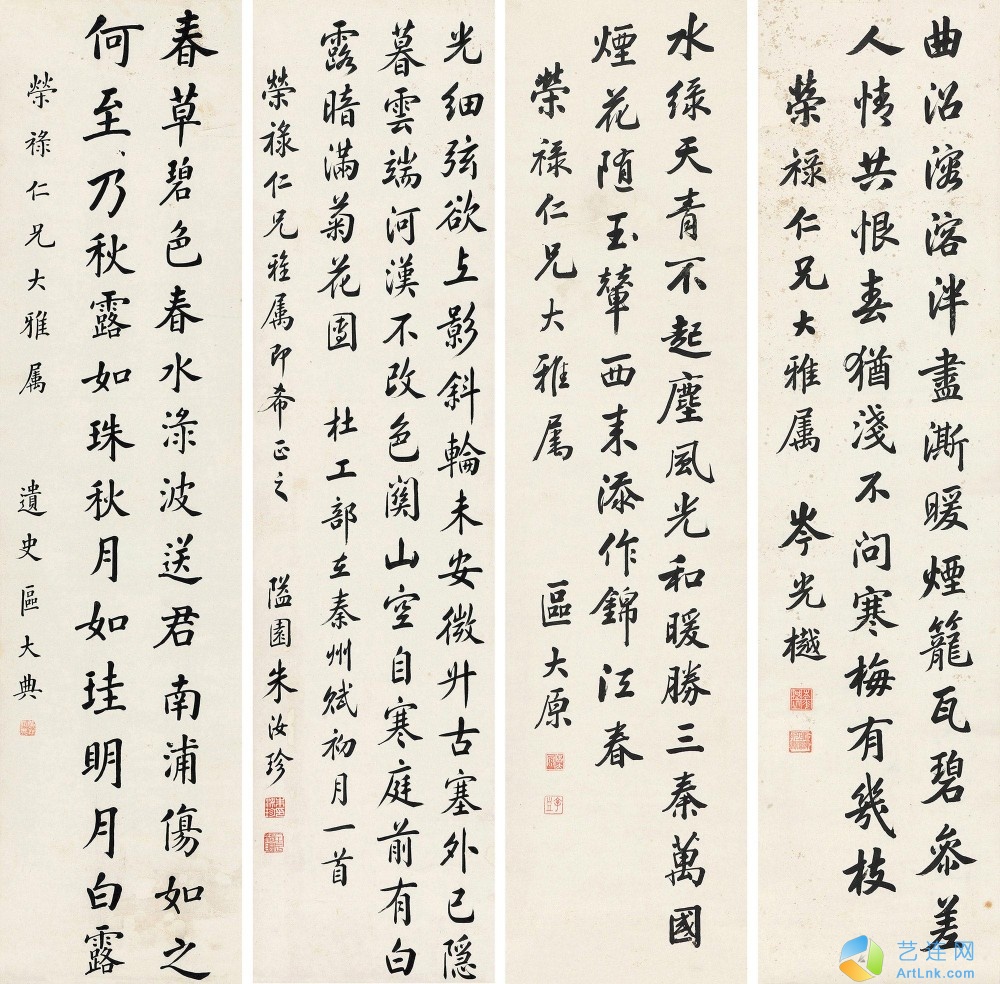 曲沼溶溶泮盡澌暖煙籠瓦碧叅差
人情共恨春猶淺不問寒梅有幾枝
榮禄仁兄大雅属 岑光樾
水緑天青不起塵風光和暖勝三秦萬國
煙花随玉輦西来添作錦江春
榮禄仁兄大雅属 區大原
光細弦欲上影斜輪未安微升古塞外已隐
暮雲端河漢不改色関山空自寒庭前有白
露暗滿菊花團 杜工部在秦州賦初月一首
榮禄仁兄雅属即希正之 隘園朱汝珍
春草碧色春水淥波送君南浦傷如之
何至乃秋露如珠秋月如珪明月白露
榮禄仁兄大雅属 遺史區大典
艺连网
ArtLnk.com